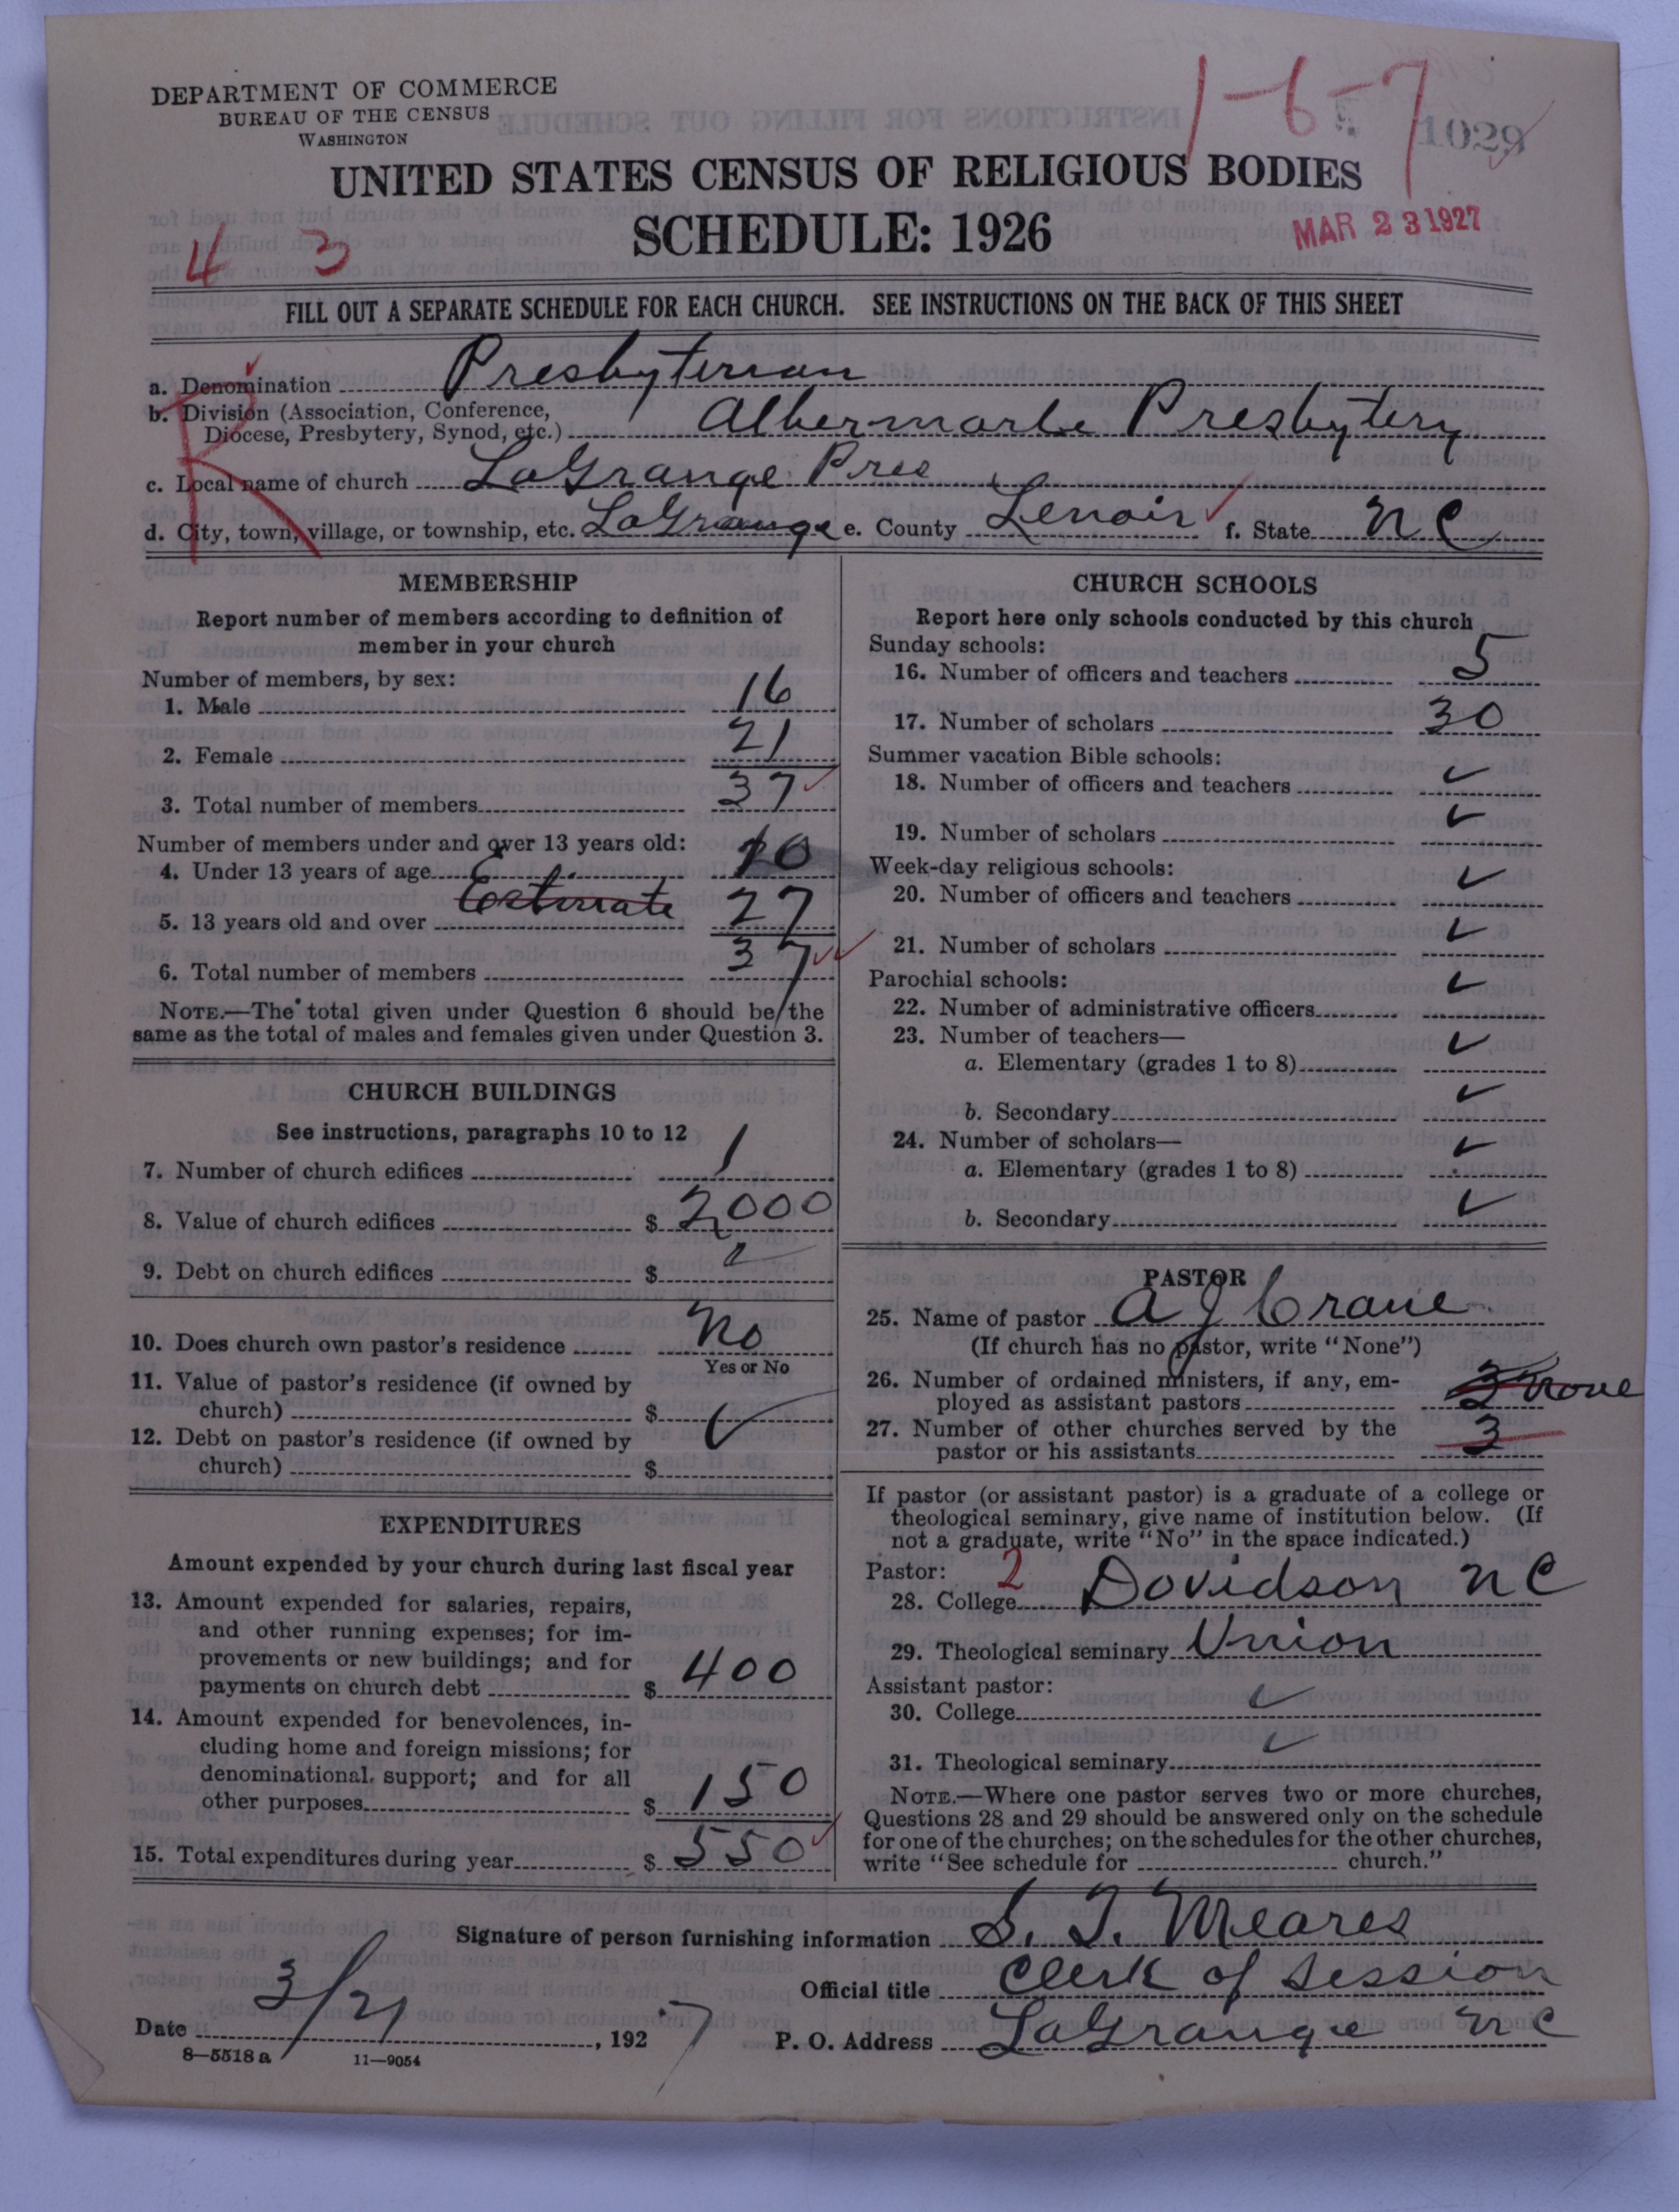 DEPARTMENT OF COMMERCE
BUREAU OF THE CENSUS
WASHINGTON
1-6-7
1029
UNITED STATES CENSUS OF RELIGIOUS BODIES
SCHEDULE: 1926
MAR 23 1927
4 3
FILL OUT A SEPARATE SCHEDULE FOR EACH CHURCH. SEE INSTRUCTIONS ON THE BACK OF THIS SHEET
a. Denomination Presbyterian
b. Division (Association, Conference,
Diocese, Presbytery, Synod, etc.) Albermarle Presbytery
c. Local name of church LaGrange Pres
d. City, town, village, or township, etc. LaGrange e. County Lenoir f. State NC
MEMBERSHIP
Report number of members according to definition of
member in your church
Number of members, by sex:
1. Male 16
2. Female 21
3. Total number of members 37
Number of members under and over 13 years old:
4. Under 13 years of age 10
Estimate
5. 13 years old and over 27
6. Total number of members 37
NOTE.—The total given under Question 6 should be the
same as the total of males and females given under Question 3.
CHURCH BUILDINGS
See instructions, paragraphs 10 to 12
7. Number of church edifices 1
8. Value of church edifices $ 2000
9. Debt on church edifices $
10. Does church own pastor's residence No
Yes or No
11. Value of pastor's residence (if owned by
church) $
12. Debt on pastor's residence (if owned by
church) $
EXPENDITURES
Amount expended by your church during last fiscal year
13. Amount expended for salaries, repairs,
and other running expenses; for im-
provements or new buildings; and for
payments on church debt $ 400
14. Amount expended for benevolences, in-
cluding home and foreign missions; for
denominational support; and for all
other purposes $ 150
15. Total expenditures during year $ 550
CHURCH SCHOOLS
Report here only schools conducted by this church
Sunday schools:
16. Number of officers and teachers 5
17. Number of scholars 30
Summer vacation Bible schools:
18. Number of officers and teachers ✓
19. Number of scholars ✓
Week-day religious schools:
20. Number of officers and teachers ✓
21. Number of scholars ✓
Parochial schools:
22. Number of administrative officers ✓
23. Number of teachers—
a. Elementary (grades 1 to 8) ✓
b. Secondary ✓
24. Number of scholars—
a. Elementary (grades 1 to 8) ✓
b. Secondary ✓
PASTOR
25. Name of pastor A J Crane
(If church has no pastor, write "None")
26. Number of ordained ministers, if any, em-
ployed as assistant pastors 3 None
27. Number of other churches served by the
pastor or his assistants 3
If pastor (or assistant pastor) is a graduate of a college or
theological seminary, give name of institution below. (If
not a graduate, write "No" in the space indicated.)
Pastor: 2
28. College Davidson NC
29. Theological seminary Union
Assistant pastor:
30. College ✓
31. Theological seminary ✓
NOTE.—Where one pastor serves two or more churches,
Questions 28 and 29 should be answered only on the schedule
for one of the churches; on the schedules for the other churches,
write "See schedule for church."
Signature of person furnishing information S. T. Meares
Official title Clerk of Session
Date 3/21, 1927
P. O. Address LaGrange NC
8—5518 a 11—9054